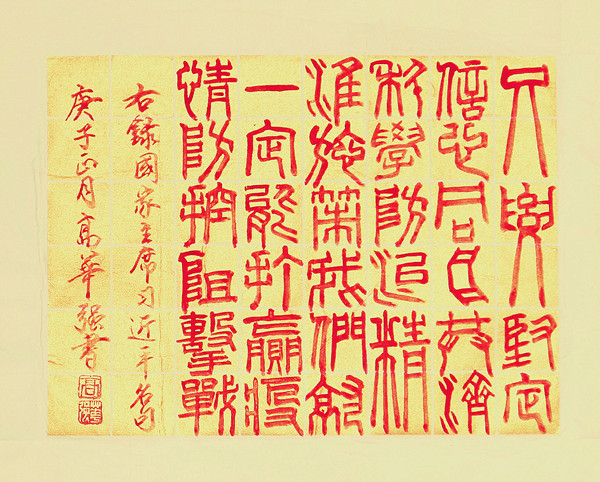 只要堅定
信心同舟共濟
科學防治精
准施策我們就
一定能打贏疫
情防控阻擊戰
右錄國家主席习近平名句
庚子正月高華强書